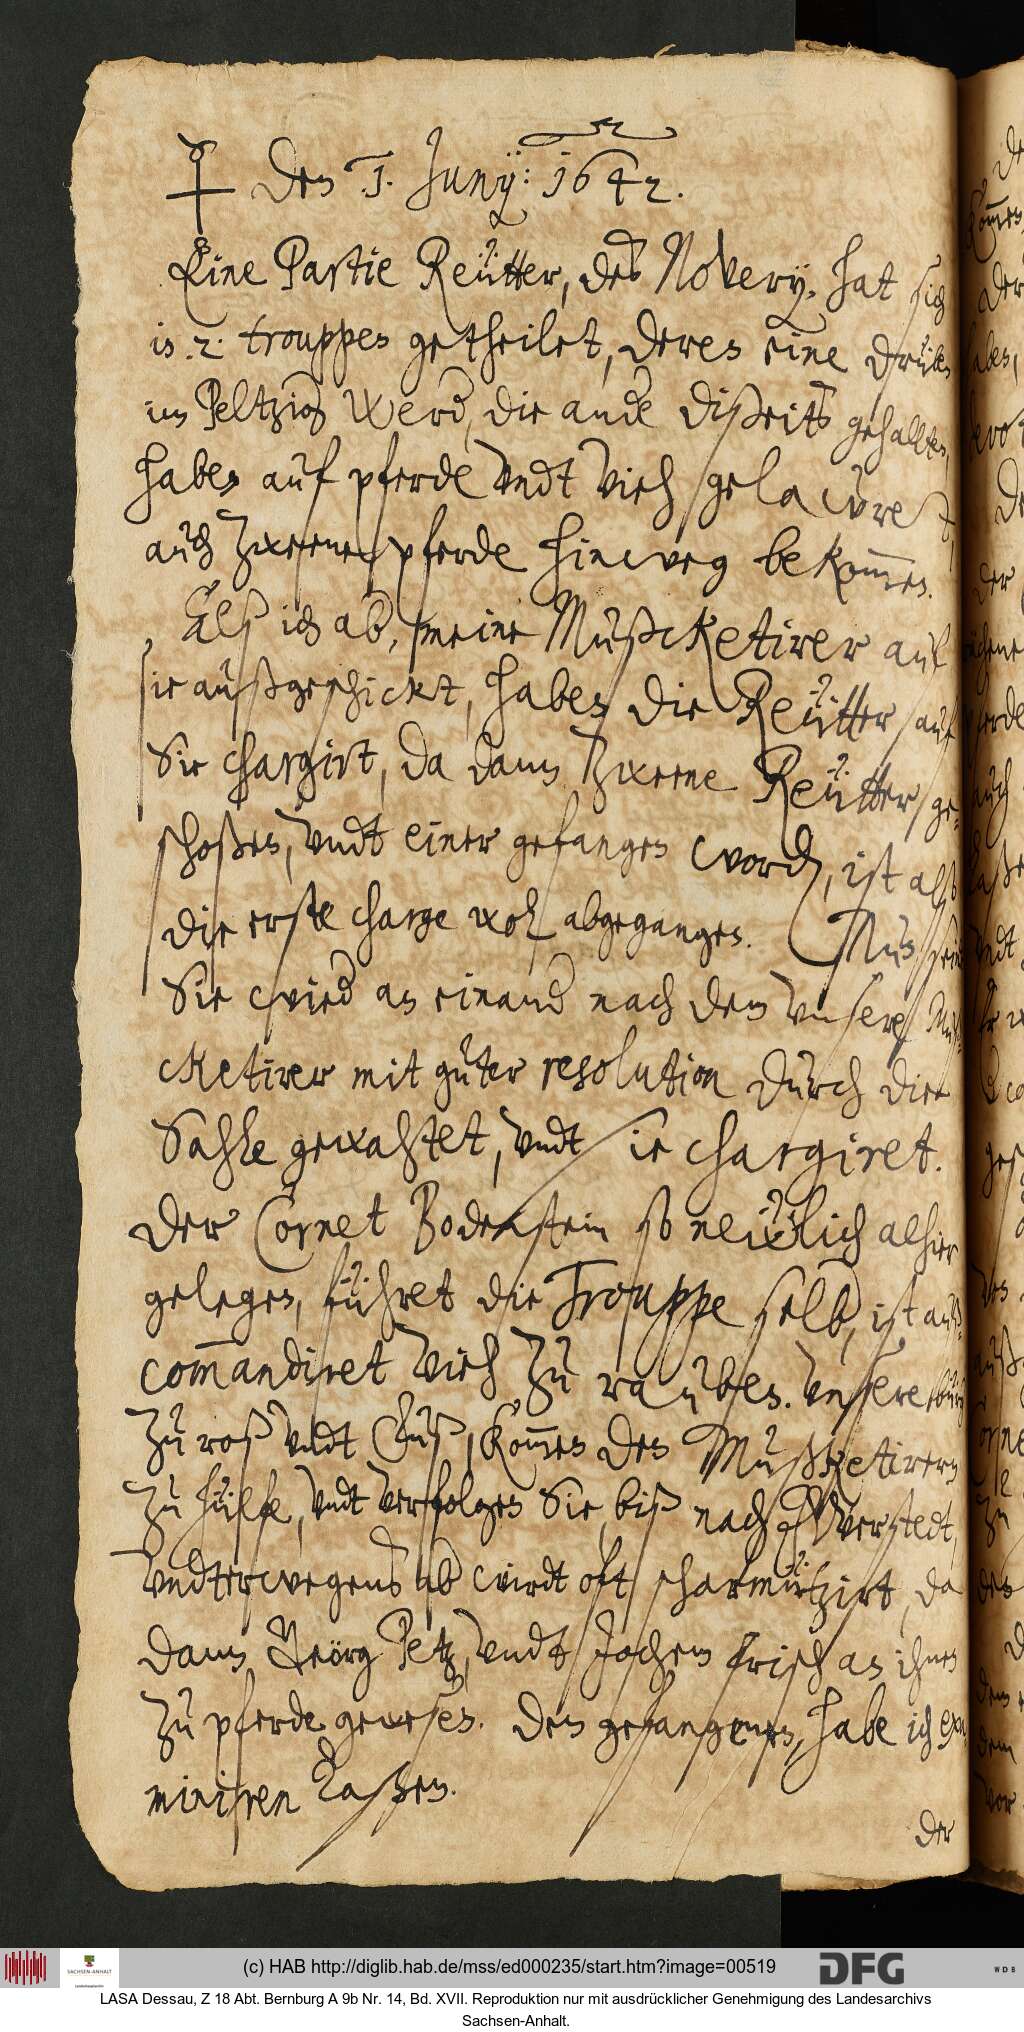 den .1. Junij: 1642.
Eine Partie Reütter, des Nokery, hat sich
in .2. trouppen getheilet, deren eine drüben
im Peltzigk Werd, die ande dißeits gehalten,
haben auf pferde vndt Vieh gelawret,
auch zweene pferde hinweg bekom̅en.
Alß ich ab, meine Mußcketirer auf
sie außgeschickt, haben die Reütter auf
Sie chargirt, da dann zweene Reütter ge-
schoßen, vndt einer gefangen word, ist alß
die erste charge wol abgegangen. Nun sein
Sie wied an einand nach dem vnsere Muß-
cketirer mit guter resolution durch die
Sahle gewahtet, vndt sie chargiret.
Der Cornet Bodenstein so neẅlich alhier
gelegen, führet die Trouppe selb, ist auß-
com̅andiret Vieh zu rauben. Vnsere bürg
zu roß vndt Fuß, kom̅en den Mußketirern
zu hülfe, vndt verfolgen Sie, biß nach Ilverstedt,
vndterwegens ab wirdt oft scharmützirt, da
dann Geörg Petz, vndt Jochem frisch an ihnen
zu pferde gewesen. Den gefangenen, habe ich exa-
miniren laßen.
der
(c) HAB http://diglib.hab.de/mss/ed000235/start.htm?image=00519
SACHSEN-ANHALT
DFG
WDB
LASA Dessau, Z 18 Abt. Bernburg A 9b Nr. 14, Bd. XVII. Reproduktion nur mit ausdrücklicher Genehmigung des Landesarchivs
Sachsen-Anhalt.